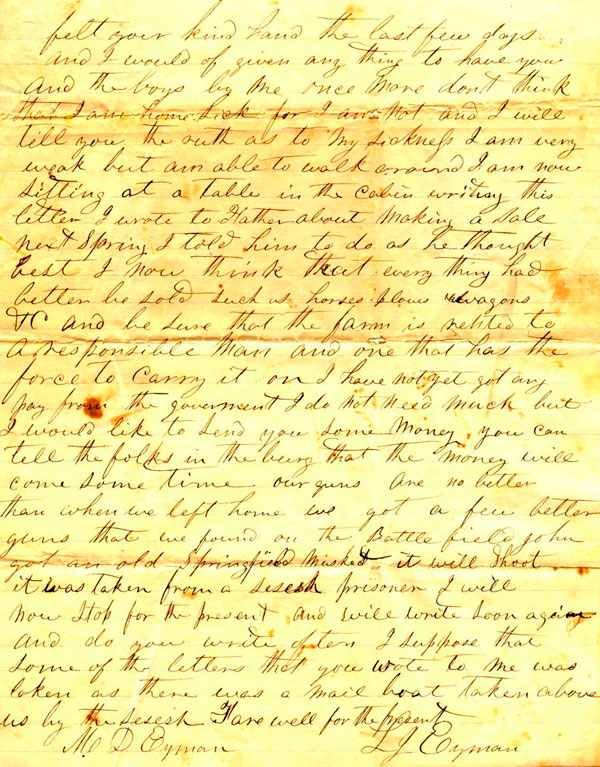 felt your kind hand the last few days
and I would of given any thing to have you
and the boys by me once more don't think
that I am home sick for I am not and I will
tell you the outh as to my sickness I am very
weak but am able to walk around I am now
sitting at a table in the cabin writing this
letter I wrote to Father about making a sale
next Spring I told him to do as he thought
best I now think that every thing had
better be sold such as horses plows wagons
&C and be sure that the farm is rented to
a responsible man and one that has the
force to carry it on I have not yet got any
pay from the goverment I do not need much but
I would like to send you some money you can
tell the folks in the burg that the money will
come some time our guns are no better
than when we left home we got a few better
guns that we found on the Battle field john
got an old Springfield Musket it will Shoot
it was taken from a sesesh prisoner I will
now stop for the present and will write soon again
and do you write often I suppose that
some of the letters that you wrote to me was
taken as there was a mail boat taken above
us by the sesesh Farewell for the present
M D Eyman L J Eyman